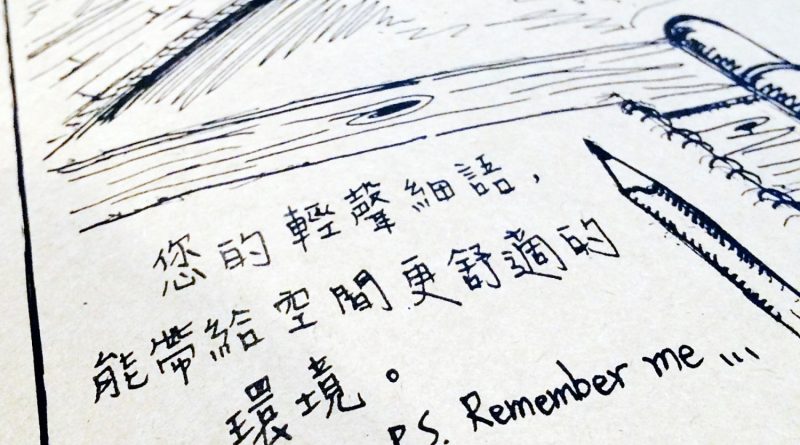 您的輕聲細語，
能帶給空間更舒適的
環境。
P.S. Remember me ...